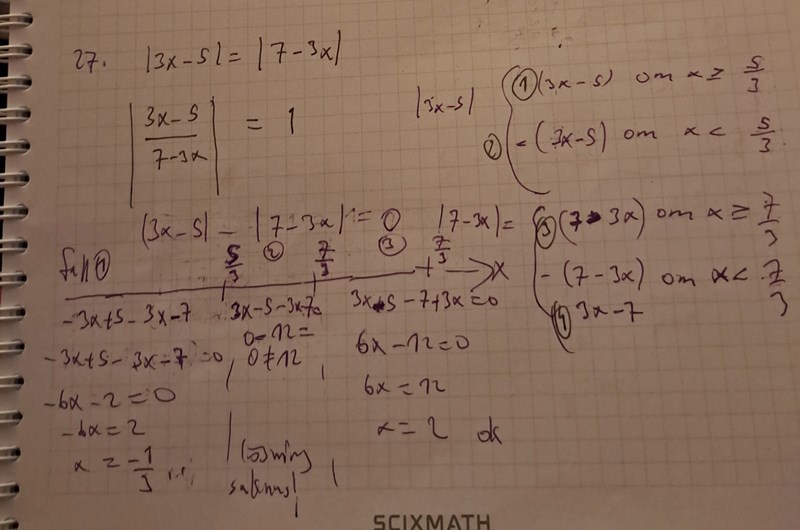 27. |3x-5| = |7-3x|
|3x-5 / 7-3x| = 1
|3x-5| ① (3x-5) om x ≥ 5/3
② -(3x-5) om x < 5/3
|3x-5| - |7-3x| = 0
|7-3x| = ③ (7-3x) om x ≥ 7/3
-(7-3x) om x < 7/3
④ 3x-7
fall ① 5/3 ② 7/3 ③ 7/3 x
-3x+5-3x-7
3x-5-3x-7=
3x-5-7+3x=0
-3x+5-3x-7=0
0-12=
0≠12
6x-12=0
-6x-2=0
6x=12
-6x=2
x=2 ok
x = -1/3
lösning
saknas
SCIXMATH